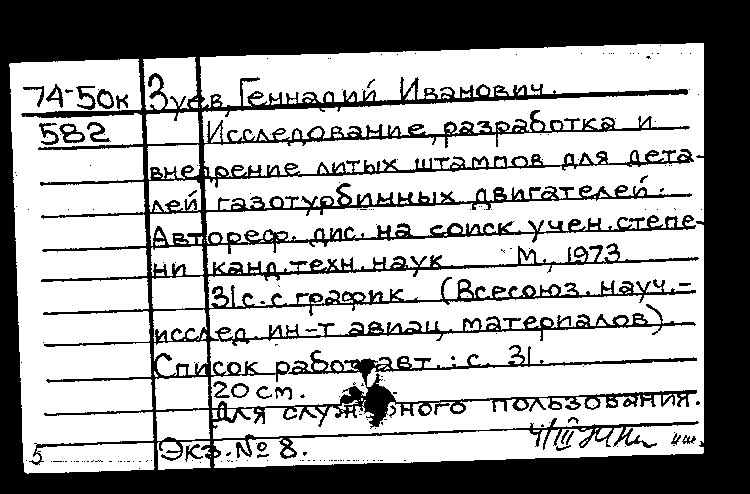 74-50к Зуев, Геннадий Иванович.
582 Исследование, разработка и
внедрение литых штампов для дета-
лей газотурбинных двигателей.
Автореф. дис. на соиск. учен. степе-
ни канд. техн. наук М., 1973
31 с. с график. (Всесоюз. науч.-
исслед. ин-т авиац. материалов).
Список работ авт.: с. 31.
20 см.
Для служ ного пользования.
5 Экз. № 8. 4/III